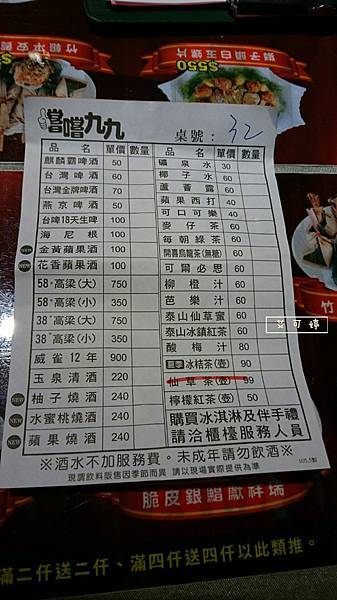 獅子頭白玉螺片
$550
嚐嚐九九
桌號：32
品名 單價 數量
麒麟霸啤酒 50
台灣啤酒 60
台灣金牌啤酒 70
燕京啤酒 50
台啤18天生啤 100
海尼根 100
NEW 金黃蘋果酒 100
NEW 花香蘋果酒 100
58°高梁(大) 750
58°高梁(小) 350
38°高梁(大) 750
38°高梁(小) 350
威雀12年 900
玉泉清酒 220
NEW 柚子燒酒 240
NEW 水蜜桃燒酒 240
NEW 蘋果燒酒 240
品名 單價 數量
礦泉水 30
椰子水 60
蘆薈露 60
蘋果西打 40
可口可樂 40
麥仔茶 60
每朝綠茶 60
開喜烏龍茶(無糖) 60
可爾必思 60
柳橙汁 60
芭樂汁 60
泰山仙草蜜 60
泰山冰鎮紅茶 60
酸梅汁 80
夏季 冰桔茶(壺) 90
仙草茶(壺) 99
檸檬紅茶(壺) 50
購買冰淇淋及伴手禮
請洽櫃檯服務人員
※酒水不加服務費。未成年請勿飲酒※
現調飲料販售因季節而異 請以現場實際提供為準
艾可婷
脆皮銀鯧獻祥瑞
滿二仟送二仟、滿四仟送四仟以此類推。